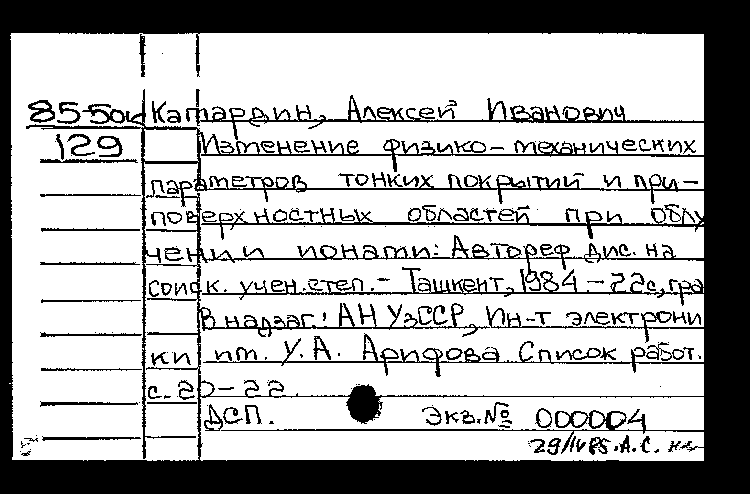 85-50к Катардин, Алексей Иванович
129 Изменение физико-механических
параметров тонких покрытий и при-
поверхностных областей при облу
чении ионами: Автореф дис. на
соиск. учен.степ.- Ташкент, 1984.-22с, гра
В надзаг.: АН УзССР, Ин-т электрони
ки им. У. А. Арифова Список работ.
с.20-22.
ДСП. Экз.№ 000004
29/IV 85. А.С.